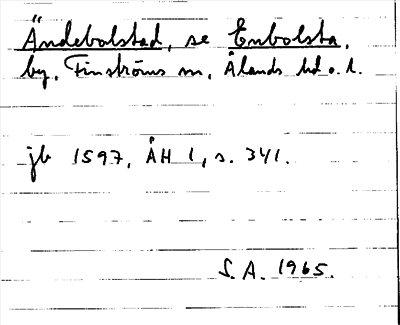 Ändebolstad, se Enbolsta,
by, Finströms sn, Ålands hd o. l.
jb 1597, ÅH 1, s. 341.
S. A. 1965.